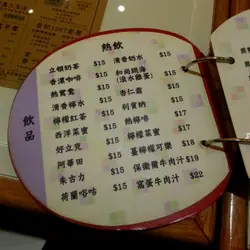 熱飲
立頓奶茶 $15
香濃咖啡 $15
熱鴛鴦 $15
清香檸水 $15
檸檬紅茶 $15
西洋菜蜜 $15
好立克 $15
阿華田 $15
朱古力 $15
荷蘭咕咕 $15
清香奶水 $15
和尚跳海 $15
(滾水雞蛋)
杏仁霜 $15
利賓納 $15
熱檸啡 $15
檸檬菜蜜 $15
薑檸檬可樂 $18
保衛爾牛肉汁 $19
窩蛋牛肉汁 $22
飲品